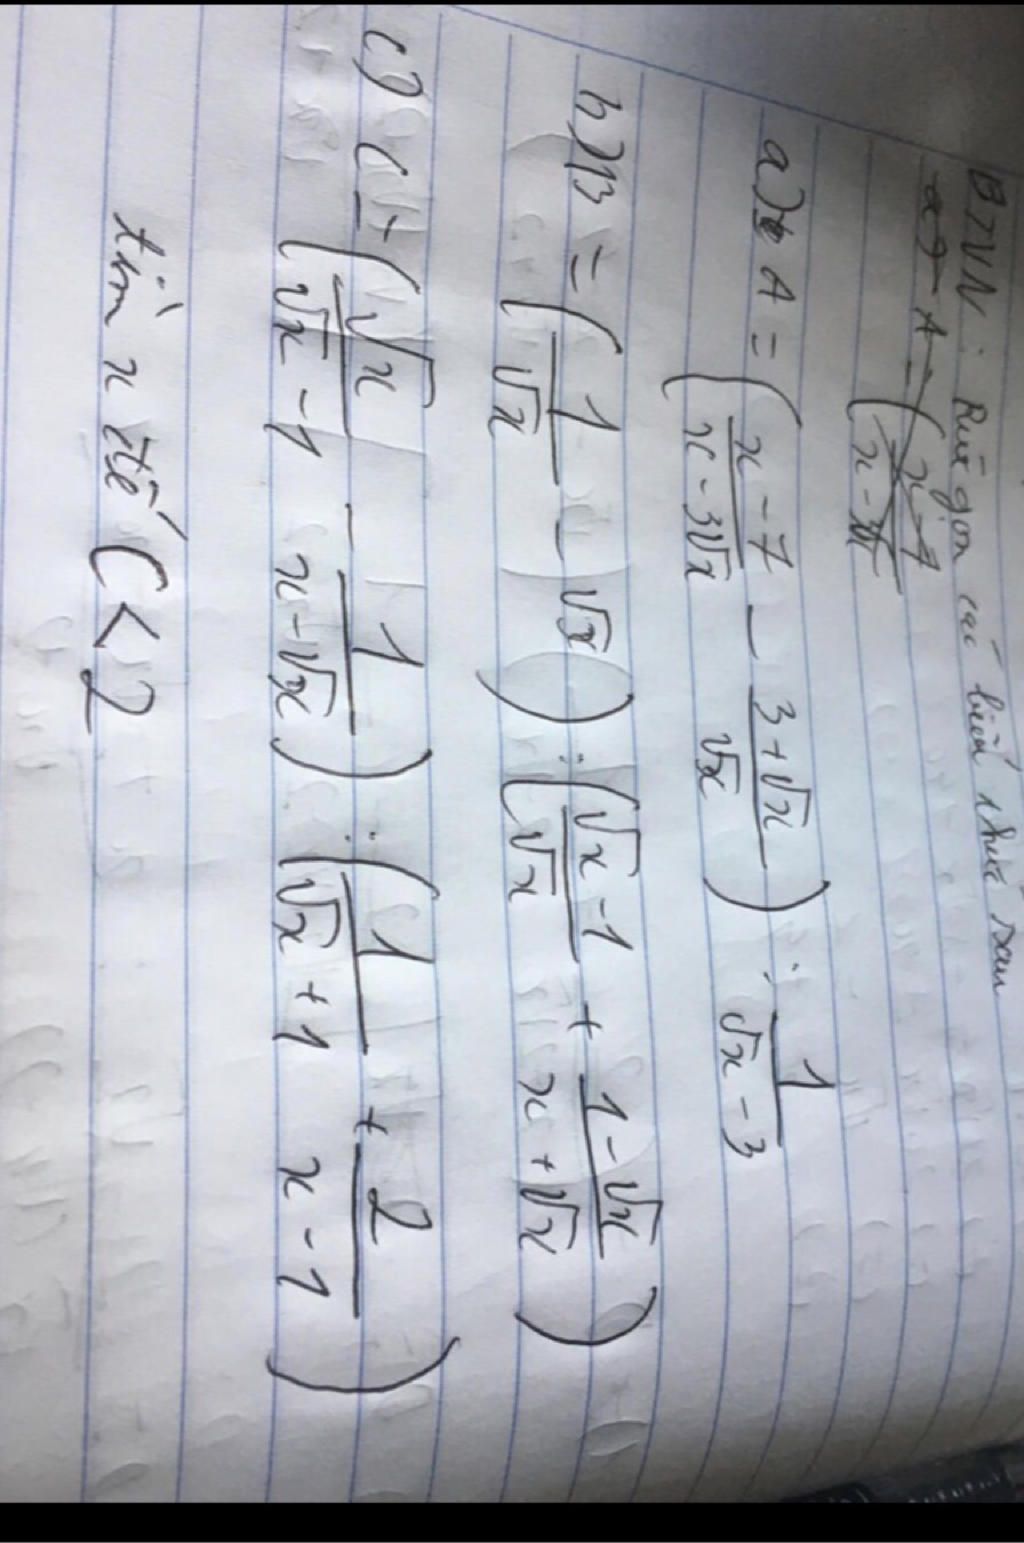 BTVN: Rút gọn các biểu thức sau
a) A = (x - 7 / x - 3√x
a) A = (x - 7 / x - 3√x - 3 + √x / √x) : 1 / √x - 3
b) B = (1 / √x - √x) : (√x - 1 / √x + 1 - √x / x + √x)
c) C = (√x / √x - 1 - 1 / x - √x) : (1 / √x + 1 + 2 / x - 1)
tìm x để C < 2